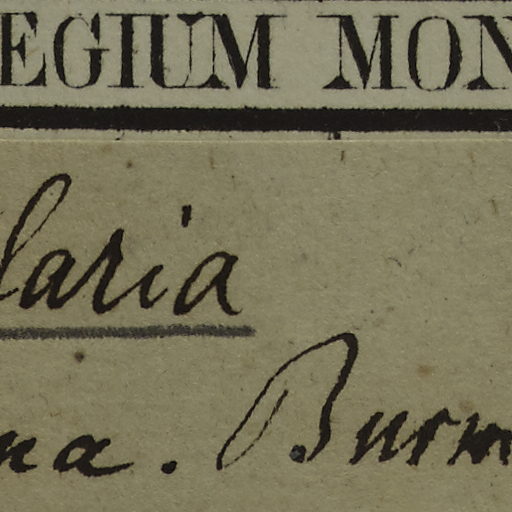 EGIUM MON
laria
na. Burm